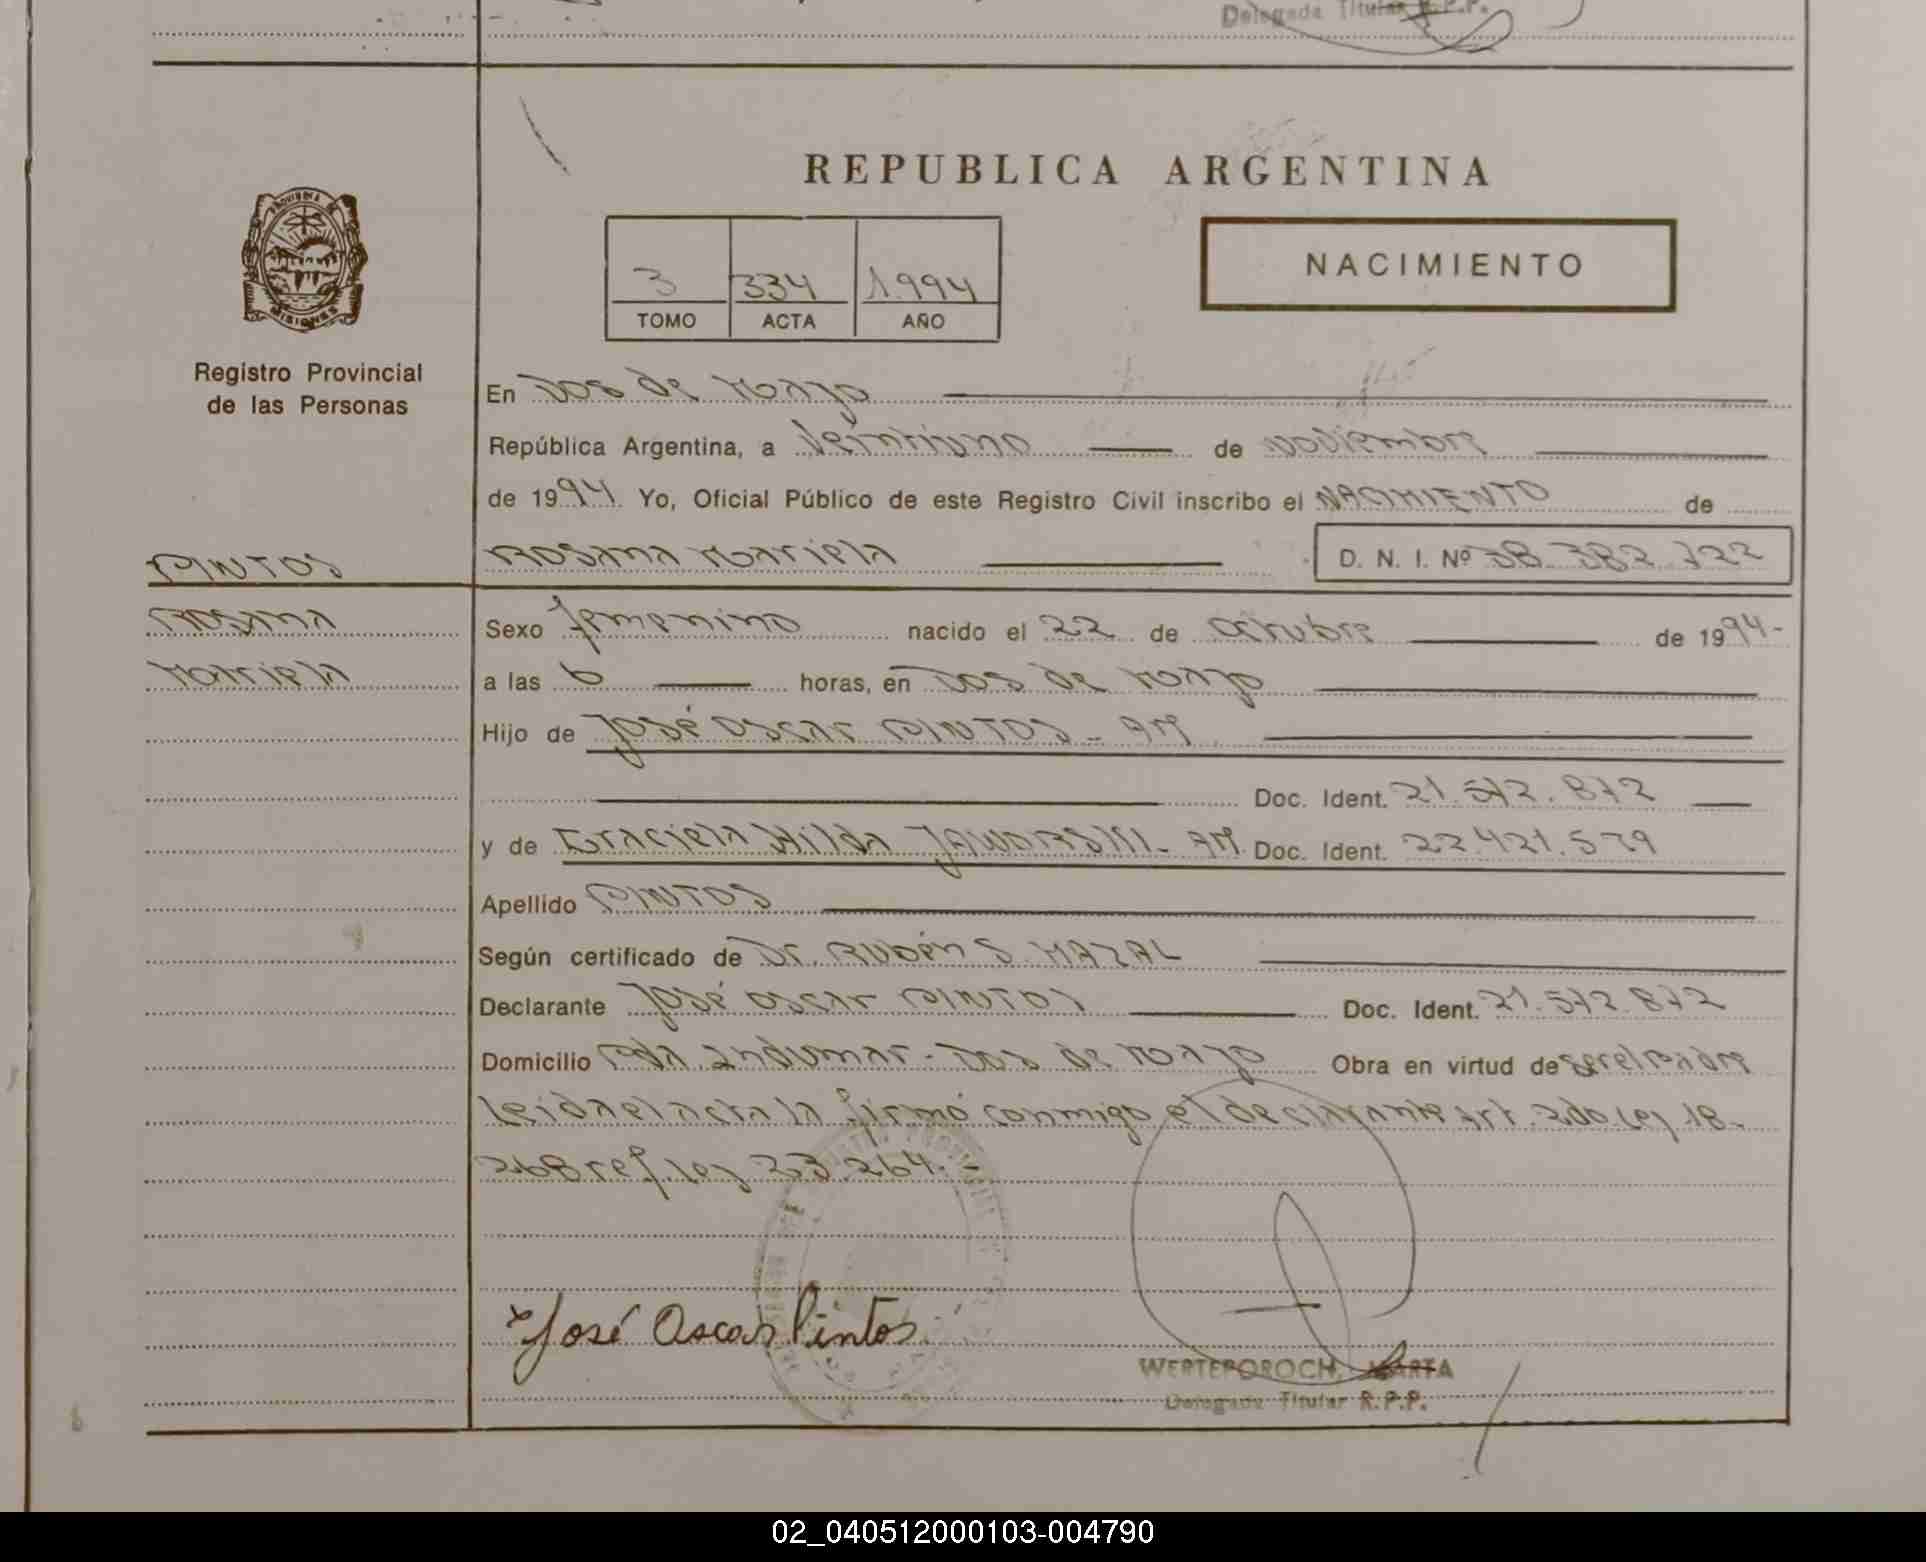 Delegada Titular R.P.P.
REPUBLICA ARGENTINA
PROVINCIA DE
MISIONES
Registro Provincial
de las Personas
3 334 1.994
TOMO ACTA AÑO
NACIMIENTO
En Dos de Mayo
República Argentina, a Veintiuno de noviembre
de 1994 Yo, Oficial Público de este Registro Civil inscribo el NACIMIENTO de
PINTOS
ROSANA Mariela D. N. I. Nº 38.382.722
ROSANA
Mariela
Sexo femenino nacido el 22 de octubre de 1994-
a las 6 horas, en Dos de Mayo
Hijo de José Oscar PINTOS - Arg
Doc. Ident. 21.572.872
y de Graciela Hilda JAWORSKI - Arg. Doc. Ident. 22.421.579
Apellido PINTOS
Según certificado de Dr. Rubén S. MAZAL
Declarante José Oscar PINTOS Doc. Ident. 21.572.872
Domicilio Pda. Indumar - Dos de Mayo Obra en virtud de ser el Padre
Leida el acta la firmó conmigo el declarante Art. 2do. Ley 18.
268 ref. Ley 23.264.-
José Oscar Pintos
WERTEPOROCH, MARTA
Delegada Titular R.P.P.
02_040512000103-004790